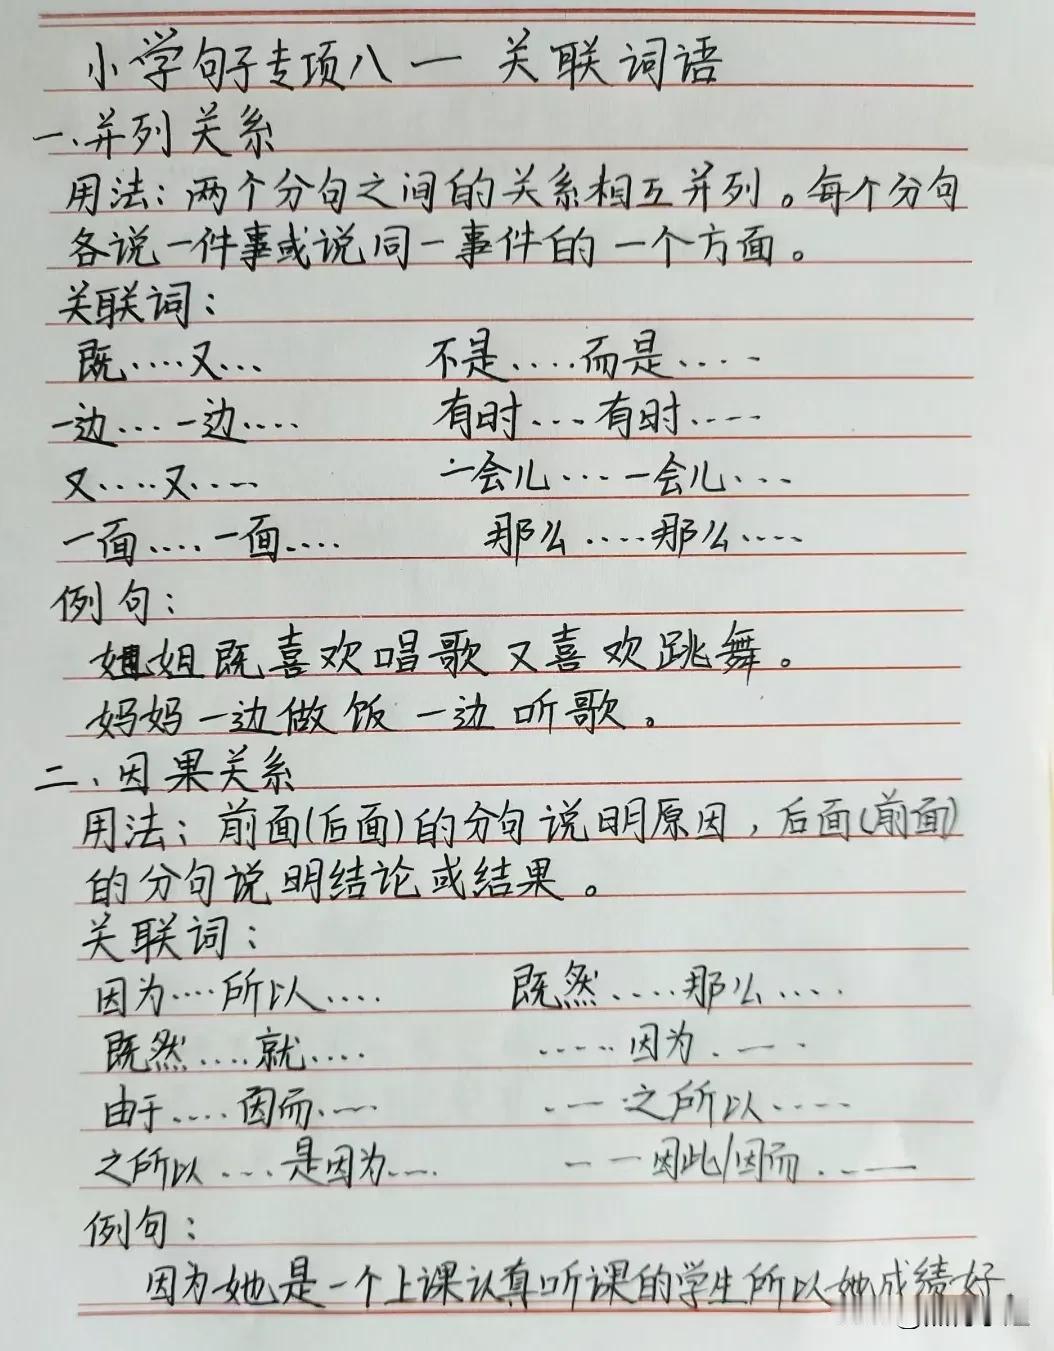 小学句子专项八一关联词语
一、并列关系
用法：两个分句之间的关系相互并列。每个分句
各说一件事或说同一事件的一个方面。
关联词：
既....又... 不是....而是....
一边...一边.... 有时....有时.....
又....又..... 一会儿...一会儿...
一面....一面.... 那么....那么....
例句：
姐姐既喜欢唱歌又喜欢跳舞。
妈妈一边做饭一边听歌。
二、因果关系
用法：前面(后面)的分句说明原因，后面(前面)
的分句说明结论或结果。
关联词：
因为....所以.... 既然....那么....
既然....就.... .....因为.—.
由于....因而.... .—.之所以....
之所以....是因为.... ——因此/因而....
例句：
因为她是一个上课认真听课的学生所以她成绩好